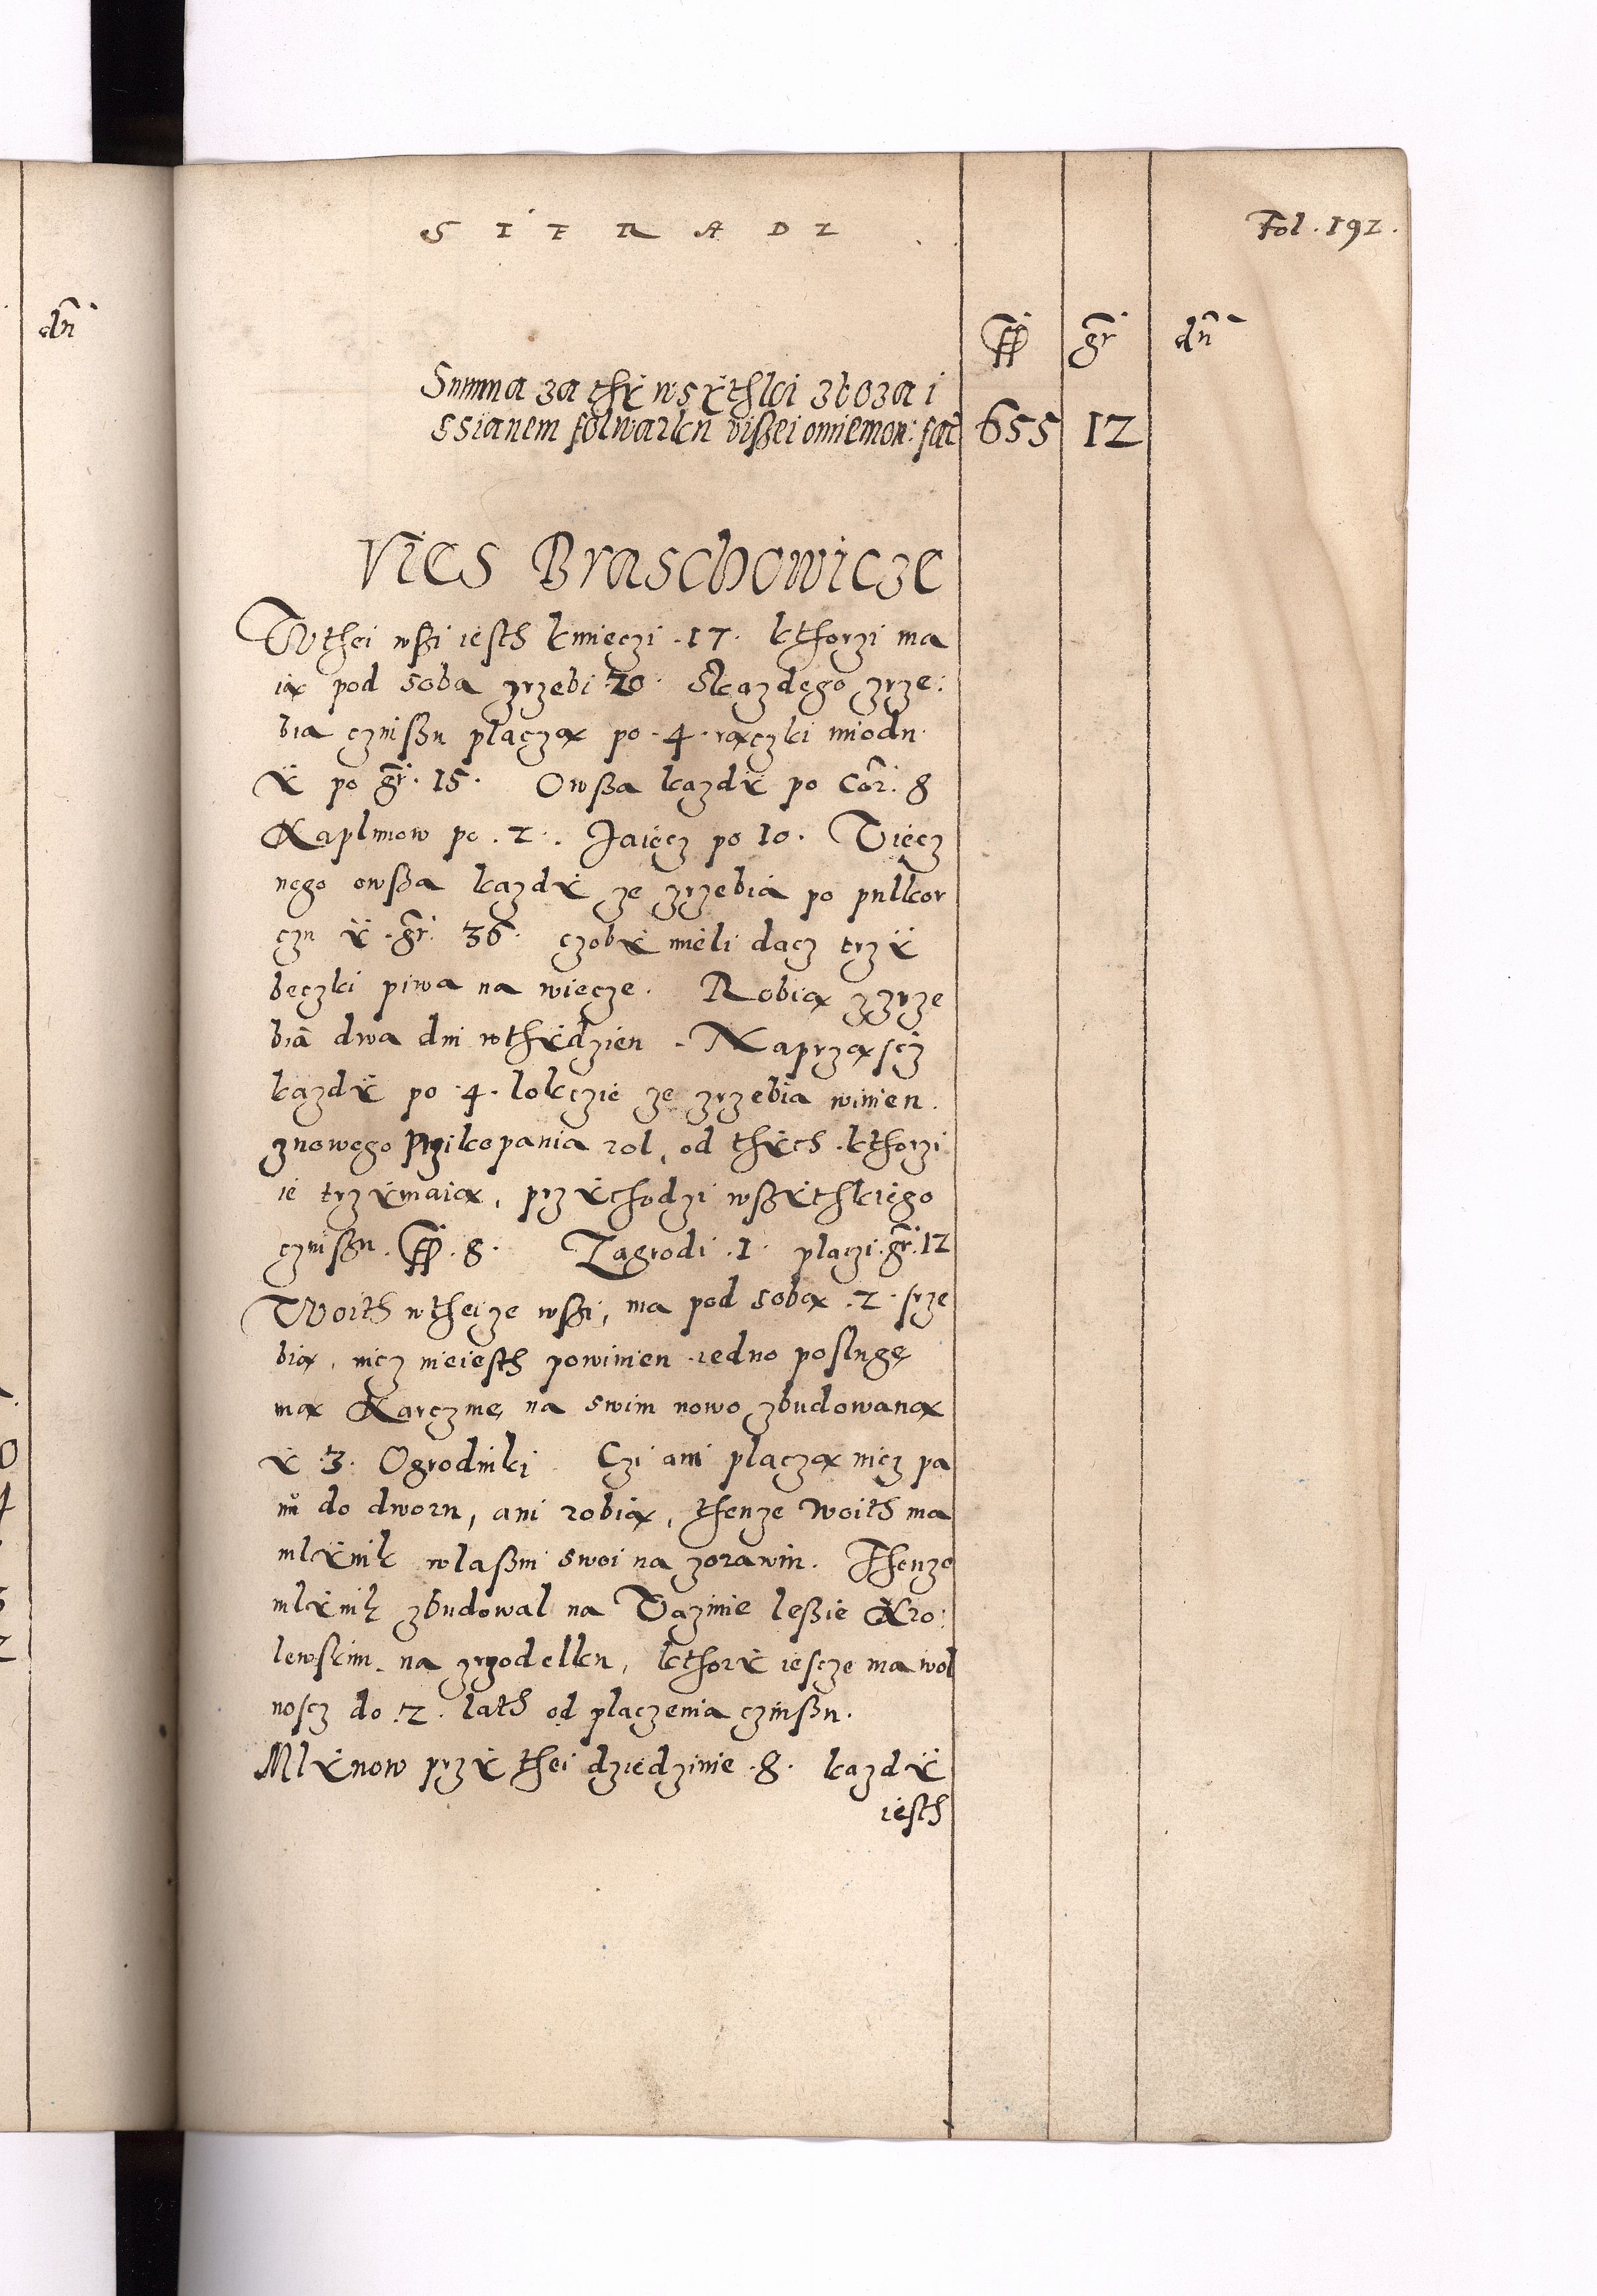 SIERADZ
Fol. 191.
dn
ff gr dn
Summa za thÿ wsÿthki zboza i
ssianem folwarku vißei omiemon: fac 655 12
Vies Braschowicze
Wthei wßi iesth kmięczi .17. kthorzi ma
ią pod soba zrzebi 20. Skazdego zrze:
bia czinßu płaczą po .4. rączki miodu
ÿ po gr. 15. Owßa kazdÿ po cor. 8
Kapłunow po .2. Jaięcz po 10. Więcz
nego owßa kazdÿ ze zrzebia po pułkor
czu ÿ .gr. 36. czobÿ mieli dacz trzÿ
beczki piwa na wiecze. Robią zzrze
bia dwa dni wthÿdzien. Naprząscz
kazdÿ po .4. lokczie ze zrzebia winien.
znowego Przikopania rol, od thÿch kthorzi
ie trzÿmaią, przÿchodzi wßÿthkiego
czinßu. ff .8. Zagrodi .1. płaczi. gr. 12
Woith wtheize wßi, ma pod sobą .2. srze
bia, nicz nieiesth powinien iedno posługę
ma Karczmę na swim nowo zbudowaną
ÿ .3. Ogrodniki Czi ani płaczą nicz pa
nu do dworu, ani robią, thenze Woith ma
młÿnik własßni swoi na zorawiu. Thenze
młÿnik zbudował na Wazinie leßie Kro:
lewskim na zrzodełku, kthorÿ iescze ma wol
noscz do .2. lath od płaczenia czinßu.
Młÿnow przÿ thei dziedzinie .8. kazdÿ
iesth